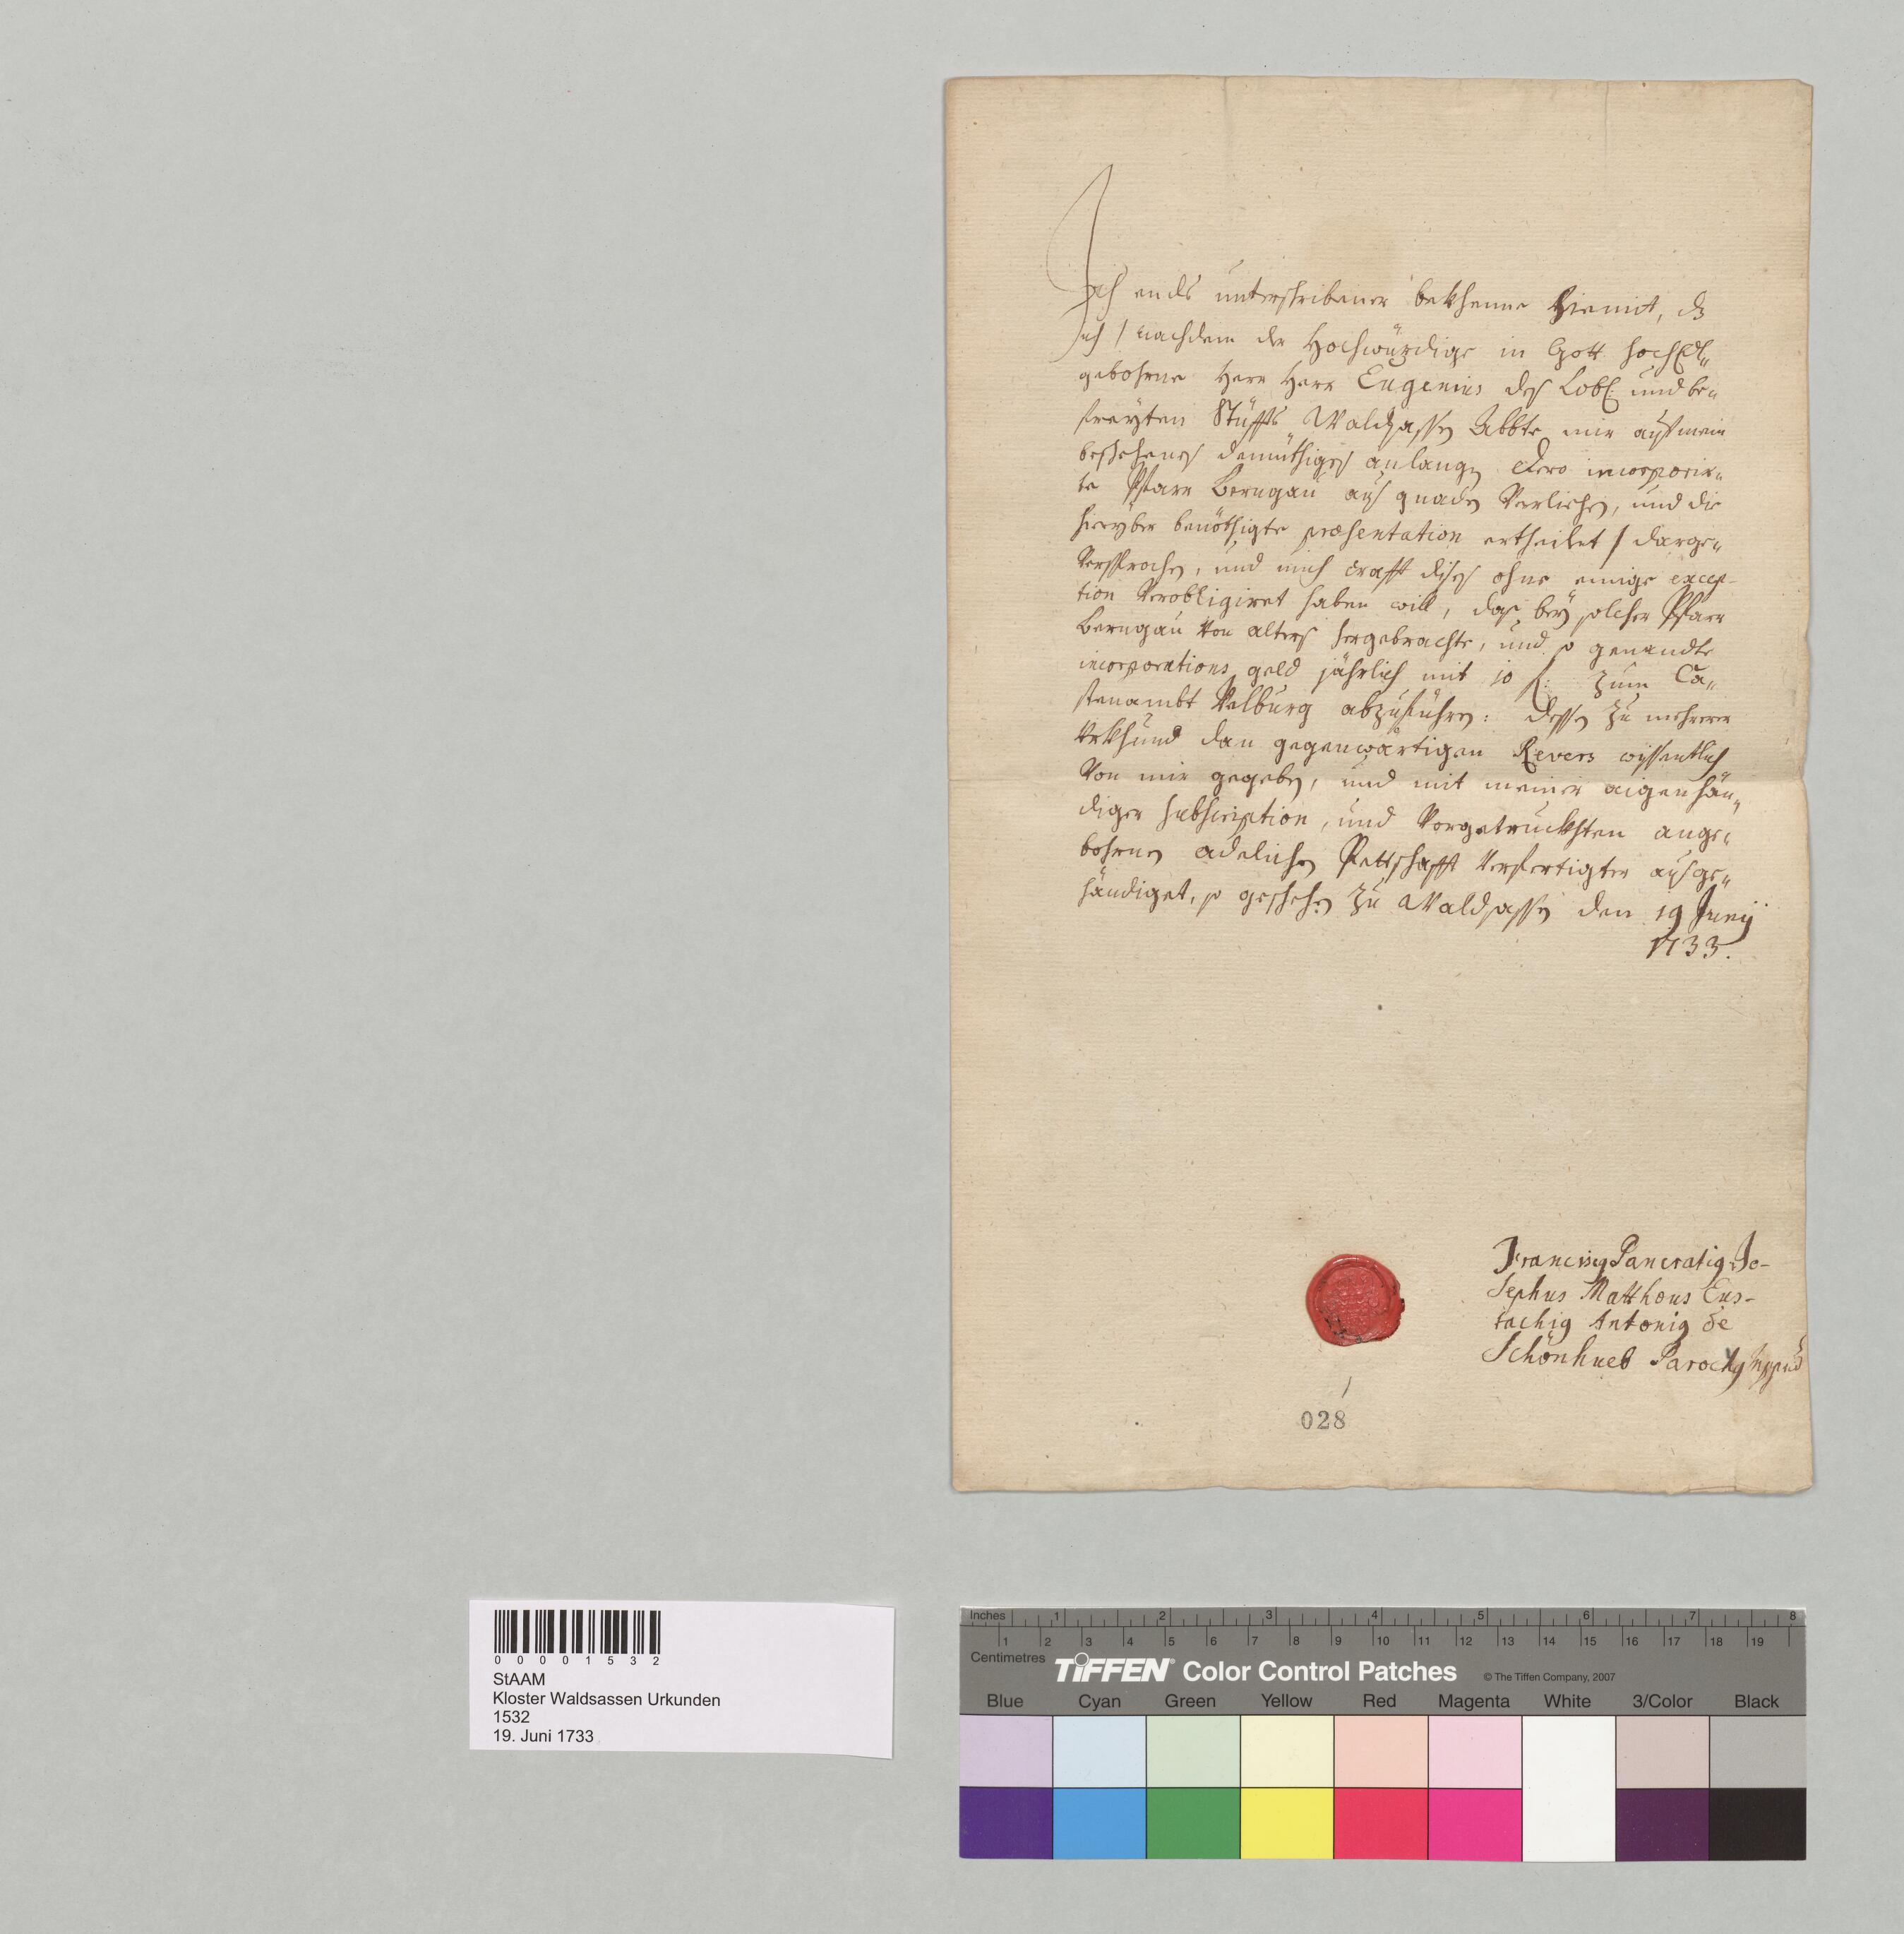 Ich ends unterschribener bekhenne hiemit, dz
ich / nachdem der Hochwürdige in Gott hochEdl„
gebohrne Herr Herr Eugenius des Löbl: und be„
freÿten Stüffts Waldsassen Abbte mir auf mein
beschehenes demüthiges anlangen dero incorporir„
te Pfarr Berngau aus gnaden Verliehen, und die
hierüber benöthigte præsentation ertheilet / darge„
Versprochen, und mich crafft dises ohne einige excep-
tion Verobligiret haben will, das beÿ solcher Pfarr
Berngau Von alters hergebrachte, und so genandte
incorporations geld jährlich mit 10 f: zum Ca„
stenambt Velburg abzuführen: dessen zu mehrerer
Urkhund dan gegenwärtigen Revers wissentlich
Von mir gegeben, und mit meiner aigenhän„
diger subscription, und Vorgetruckhten ange„
bohrnen adelichen Pettschafft Verfertigter ausge„
händiget, so geschehen zu Waldsassen den 19 Junÿ
1733.
Franciscus Pancratius Jo-
sephus Matthæus Eus-
tachius Antonius de
Schönhueb Parochus
028
00001532
StAAM
Kloster Waldsassen Urkunden
1532
19. Juni 1733
Inches 1 2 3 4 5 6 7 8
1 2 3 4 5 6 7 8 9 10 11 12 13 14 15 16 17 18 19
Centimetres
TIFFEN® Color Control Patches © The Tiffen Company, 2007
Blue Cyan Green Yellow Red Magenta White 3/Color Black